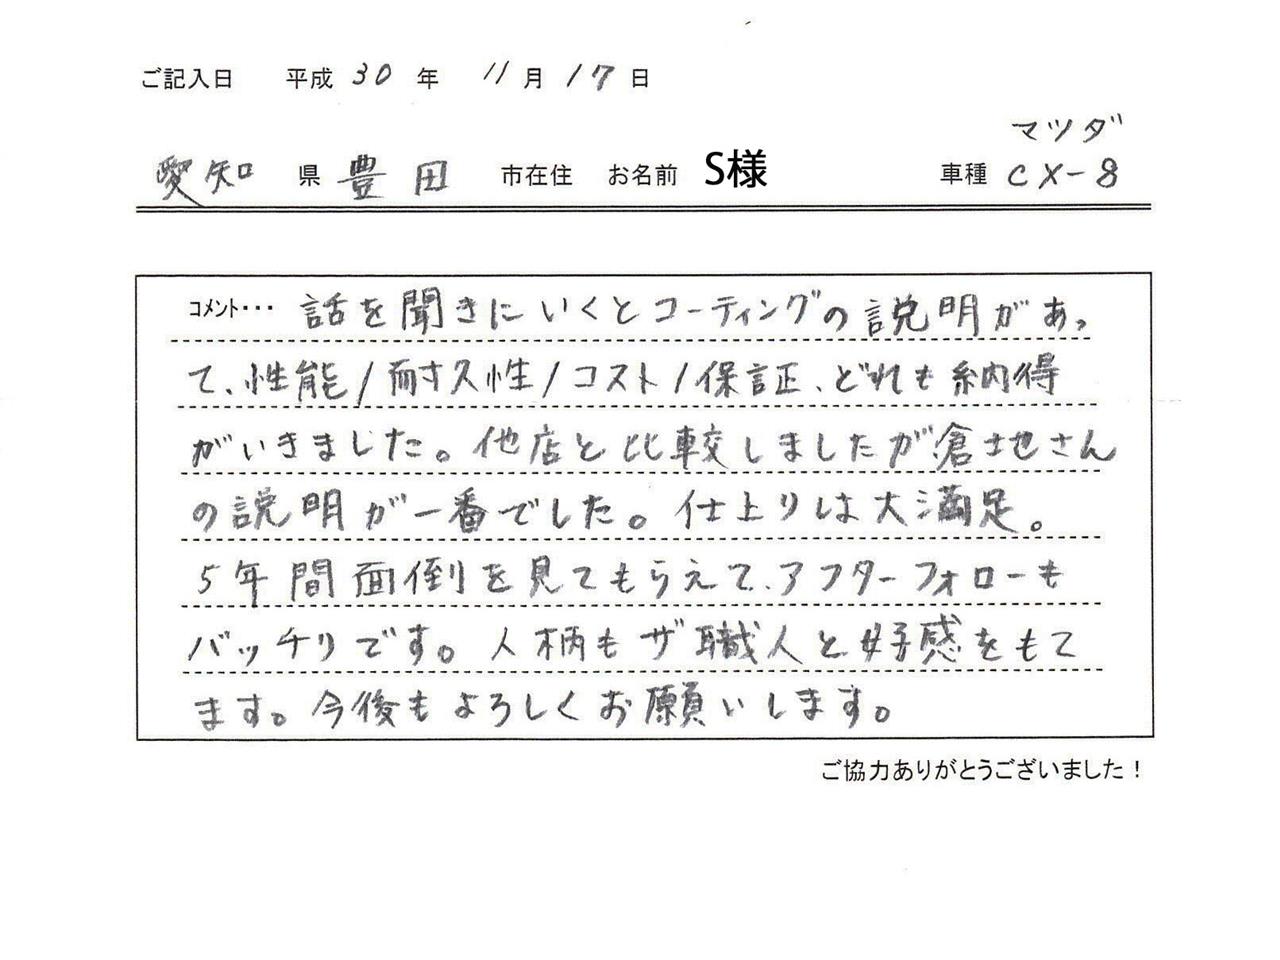 ご記入日 平成 30 年 11 月 17 日
マツダ
愛知 県 豊田 市在住 お名前 S様 車種 CX-8
コメント・・・ 話を聞きにいくとコーティングの説明があっ
て、性能/耐久性/コスト/保証、どれも納得
がいきました。他店と比較しましたが倉地さん
の説明が一番でした。仕上りは大満足。
5年間面倒を見てもらえて、アフターフォローも
バッチリです。人柄もザ職人と好感をもて
ます。今後もよろしくお願いします。
ご協力ありがとうございました！